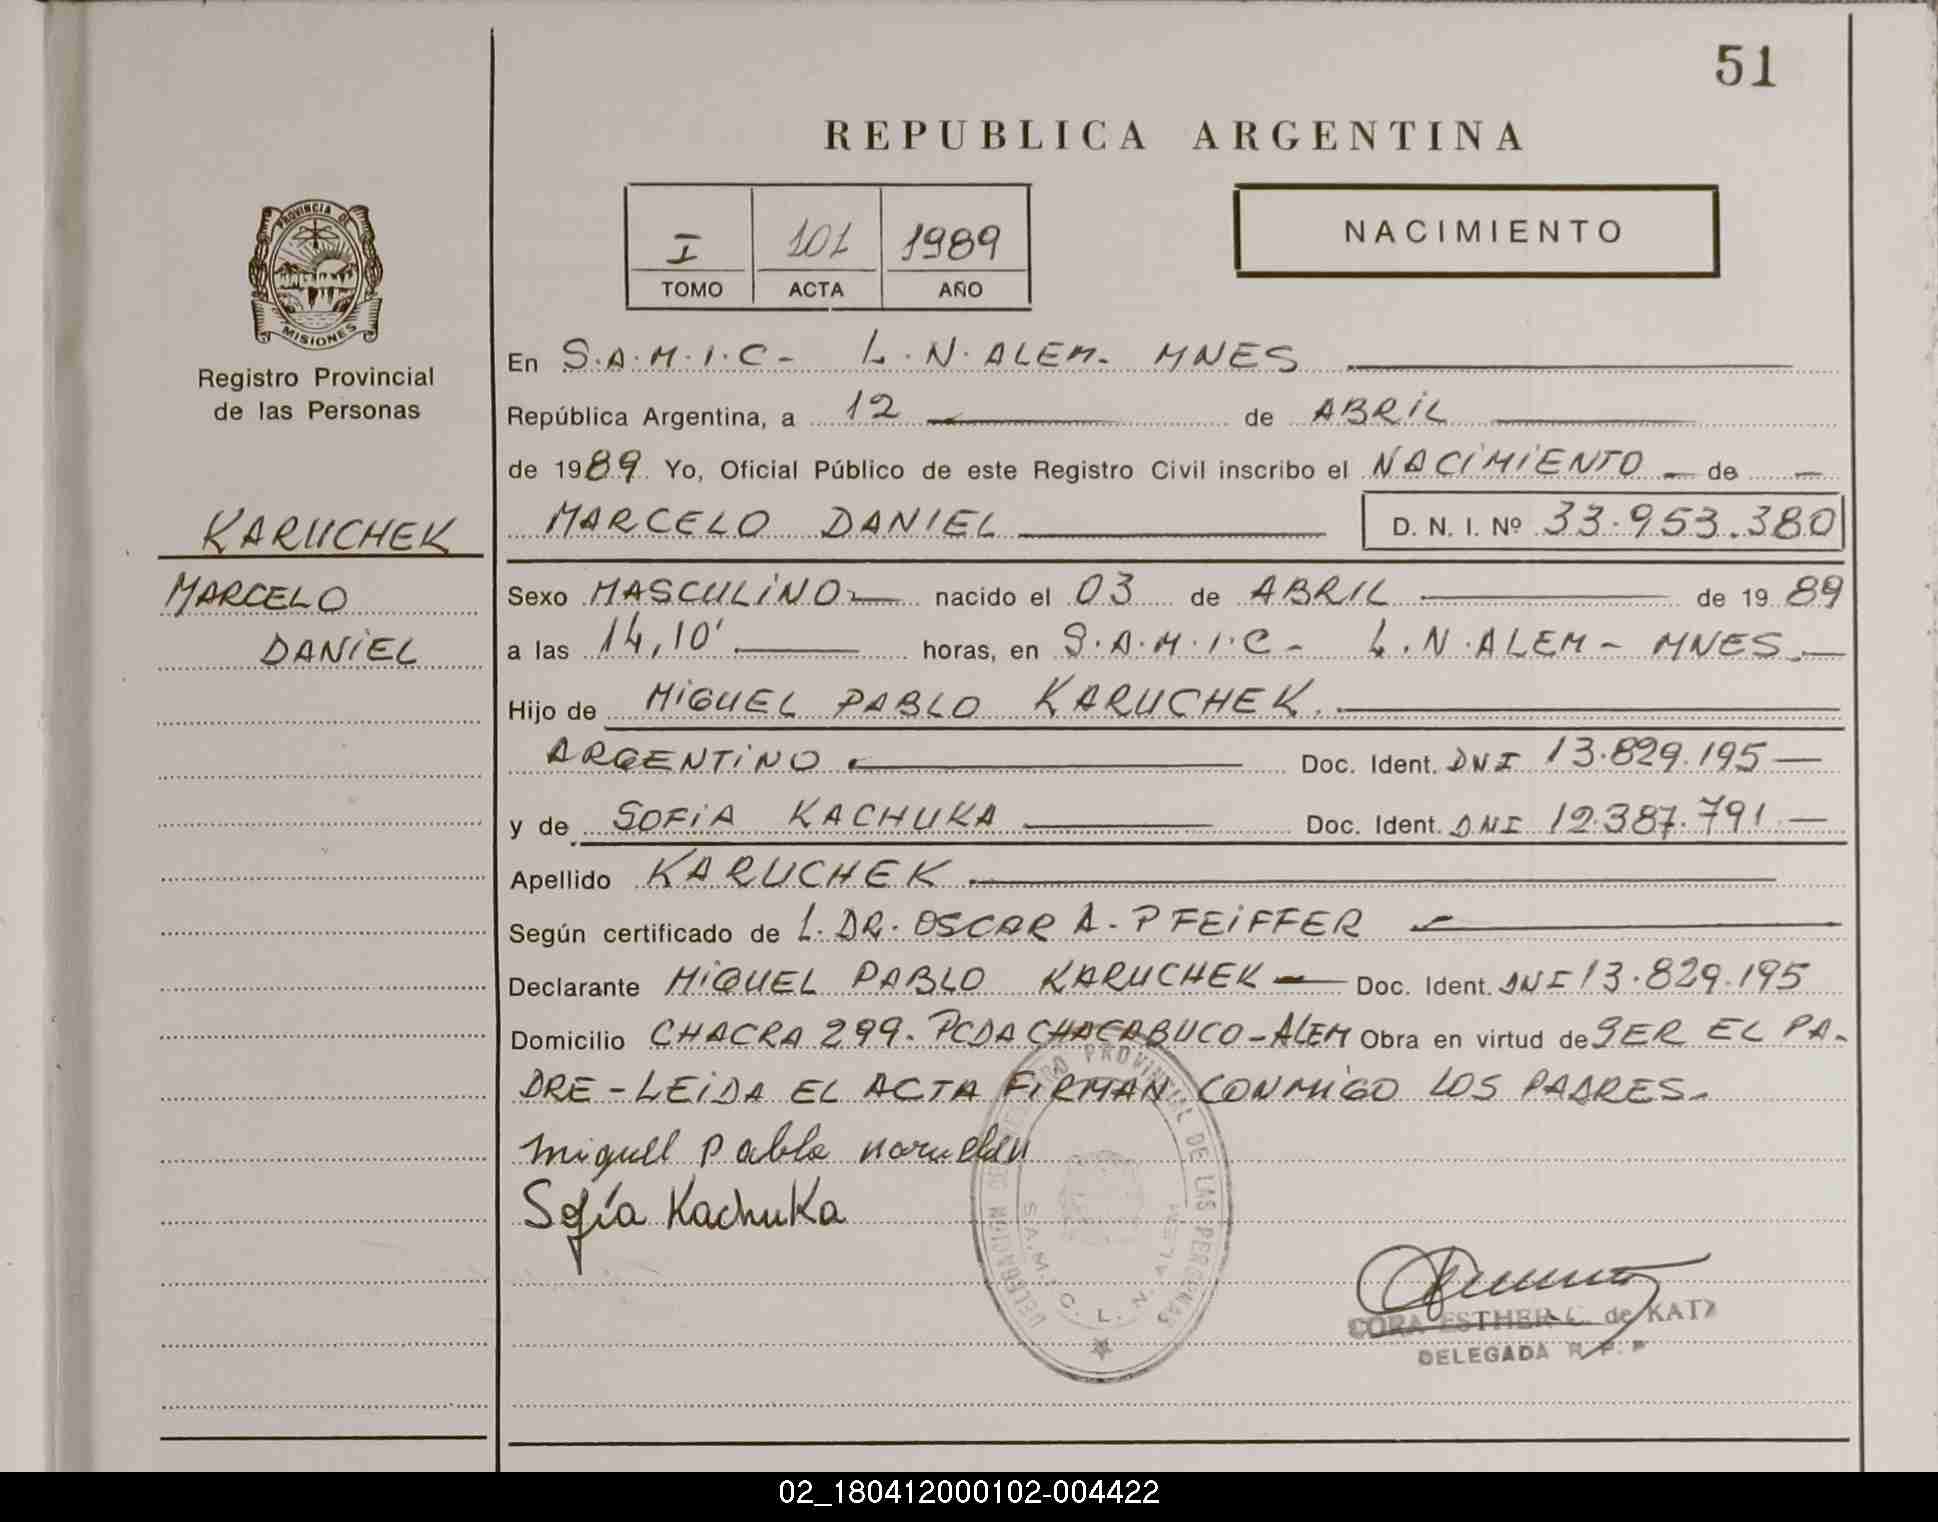 51
REPUBLICA ARGENTINA
I 101 1989
TOMO ACTA AÑO
NACIMIENTO
PROVINCIA DE
MISIONES
Registro Provincial
de las Personas
KARUCHEK
MARCELO
DANIEL
En S.A.M.I.C- L.N.ALEM- MNES
República Argentina, a 12 de ABRIL
de 1989 Yo, Oficial Público de este Registro Civil inscribo el NACIMIENTO de
MARCELO DANIEL D. N. I. Nº 33.953.380
Sexo MASCULINO nacido el 03 de ABRIL de 19 89
a las 14,10' horas, en S.A.M.I.C- L.N.ALEM- MNES.
Hijo de MIGUEL PABLO KARUCHEK.
ARGENTINO Doc. Ident. DNI 13.829.195
y de SOFIA KACHUKA Doc. Ident. DNI 12.387.791
Apellido KARUCHEK
Según certificado de L. DR. OSCAR A. PFEIFFER
Declarante MIGUEL PABLO KARUCHEK Doc. Ident. DNI 13.829.195
Domicilio CHACRA 299. PCDA CHACABUCO-ALEM Obra en virtud de SER EL PA-
DRE-LEIDA EL ACTA FIRMAN CONMIGO LOS PADRES.
Miguel Pablo
Sofía Kachuka
DELEGACION DEL REGISTRO PROVINCIAL DE LAS PERSONAS
S.A.M.I.C. L.N.ALEM
CORA ESTHER C. de KATZ
DELEGADA R. P. P
02_180412000102-004422